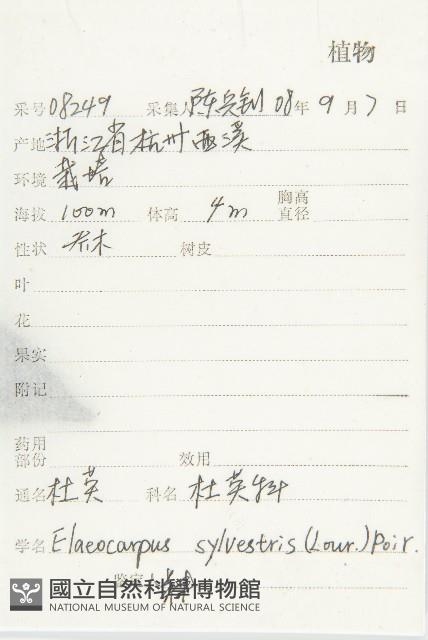 植物
采号 08249 采集人 陈 08年 9月 7日
产地 浙江省杭州西溪
环境 栽培
海拔 100m 体高 4m 胸高直径
性状 乔木 树皮
叶
花
果实
附记
药用部份 效用
通名 杜英 科名 杜英科
学名 Elaeocarpus sylvestris (Lour.) Poir.
鉴定
國立自然科學博物館
NATIONAL MUSEUM OF NATURAL SCIENCE